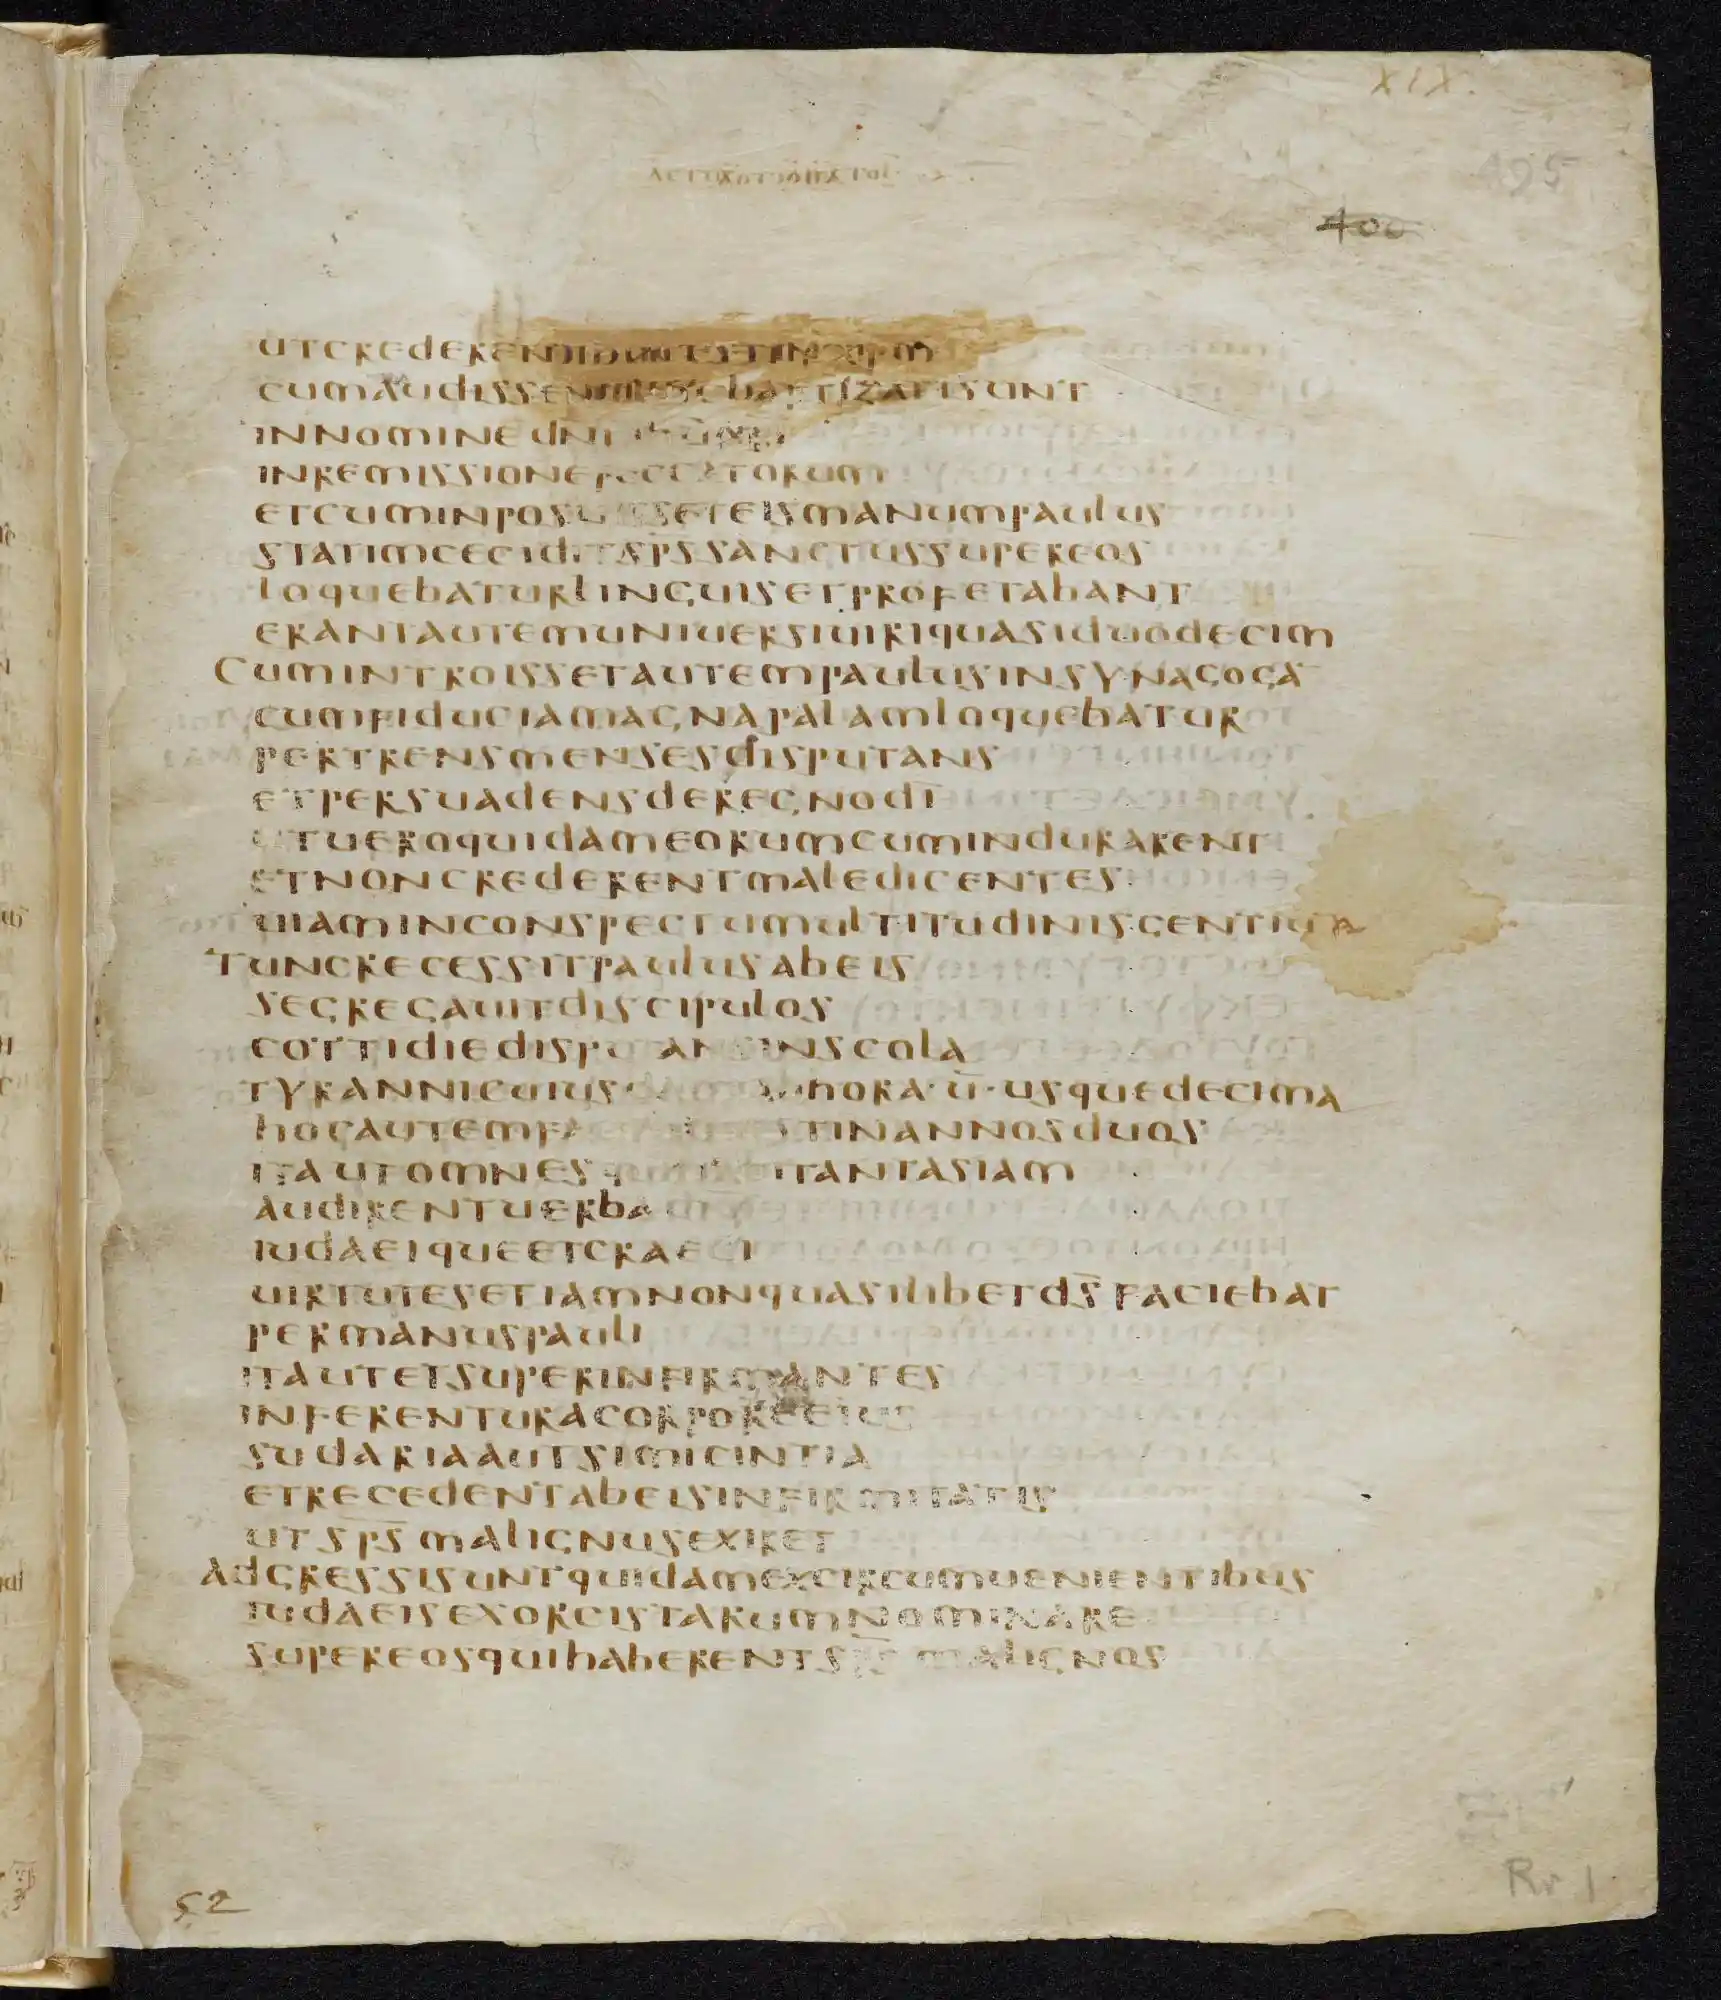 XIX.
495
400
utcrederent
cumaudissent baptizatisunt
innominedn̄i ihū
inremissionepeccatorum
etcuminposuisseteismanumpaulus
statimceciditsp̄ssanctussupereos
loquebaturlinguisetprofetabant
erantautemuniuersiuiriquasiduodecim
Cumintroissetautempaulusinsynagogā
cumfiduciamagnapalamloquebatur
pertrensmensesdisputans
etpersuadensderegnodī
utueroquidameorumcumindurarent
etnoncrederentmaledicentes
uiaminconspectumultitudinisgentium
Tuncrecessitpaulusabeis
segregauitdiscipulos
cottidiedisputansinscola
tyrannicuius hora·ū·usquedecima
hocautem inannosduos
itautomnes asiam
audirentuerba
iudaeiqueetgraeci
uirtutesetiamnonquaslibetds̄faciebat
permanuspauli
itautetsuperinfirmantes
inferenturacorporeeius
sudariaautsimicintia
etrecedentabeisinfirmitatis
utsp̄smalignusexiret
Adgressisuntquidamexcircumuenientibus
iudaeisexorcistarumnominare
supereosquihaberent malignos
52
Rr 1